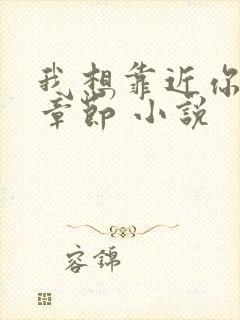 我想靠近你
章節 小說
容錦